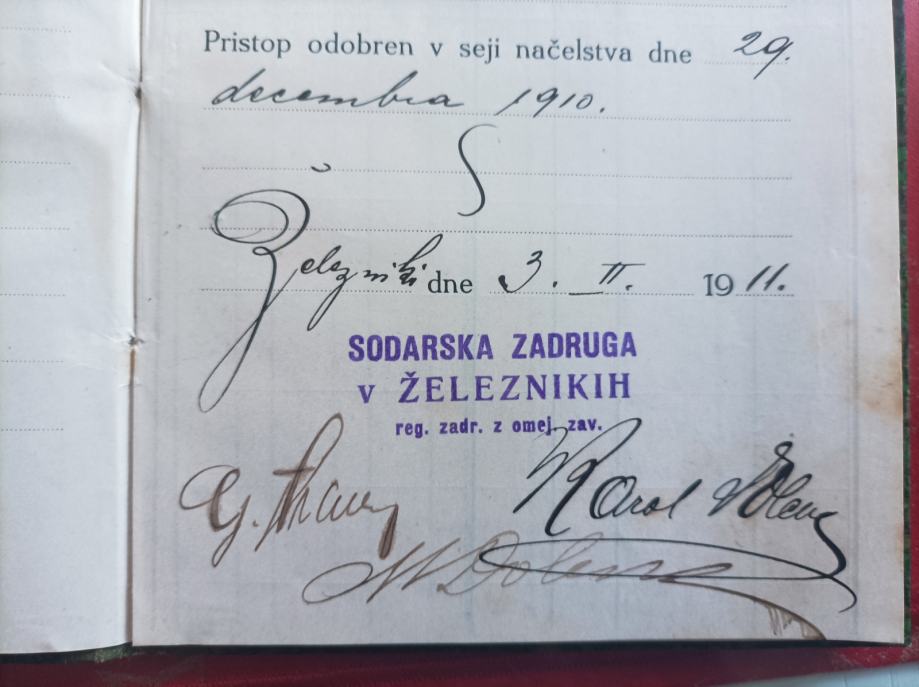 Pristop odobren v seji načelstva dne 29.
decembra 1910.
Železniki dne 3. II. 1911.
SODARSKA ZADRUGA
v ŽELEZNIKIH
reg. zadr. z omej. zav.
G.
Karol
M Dolenc